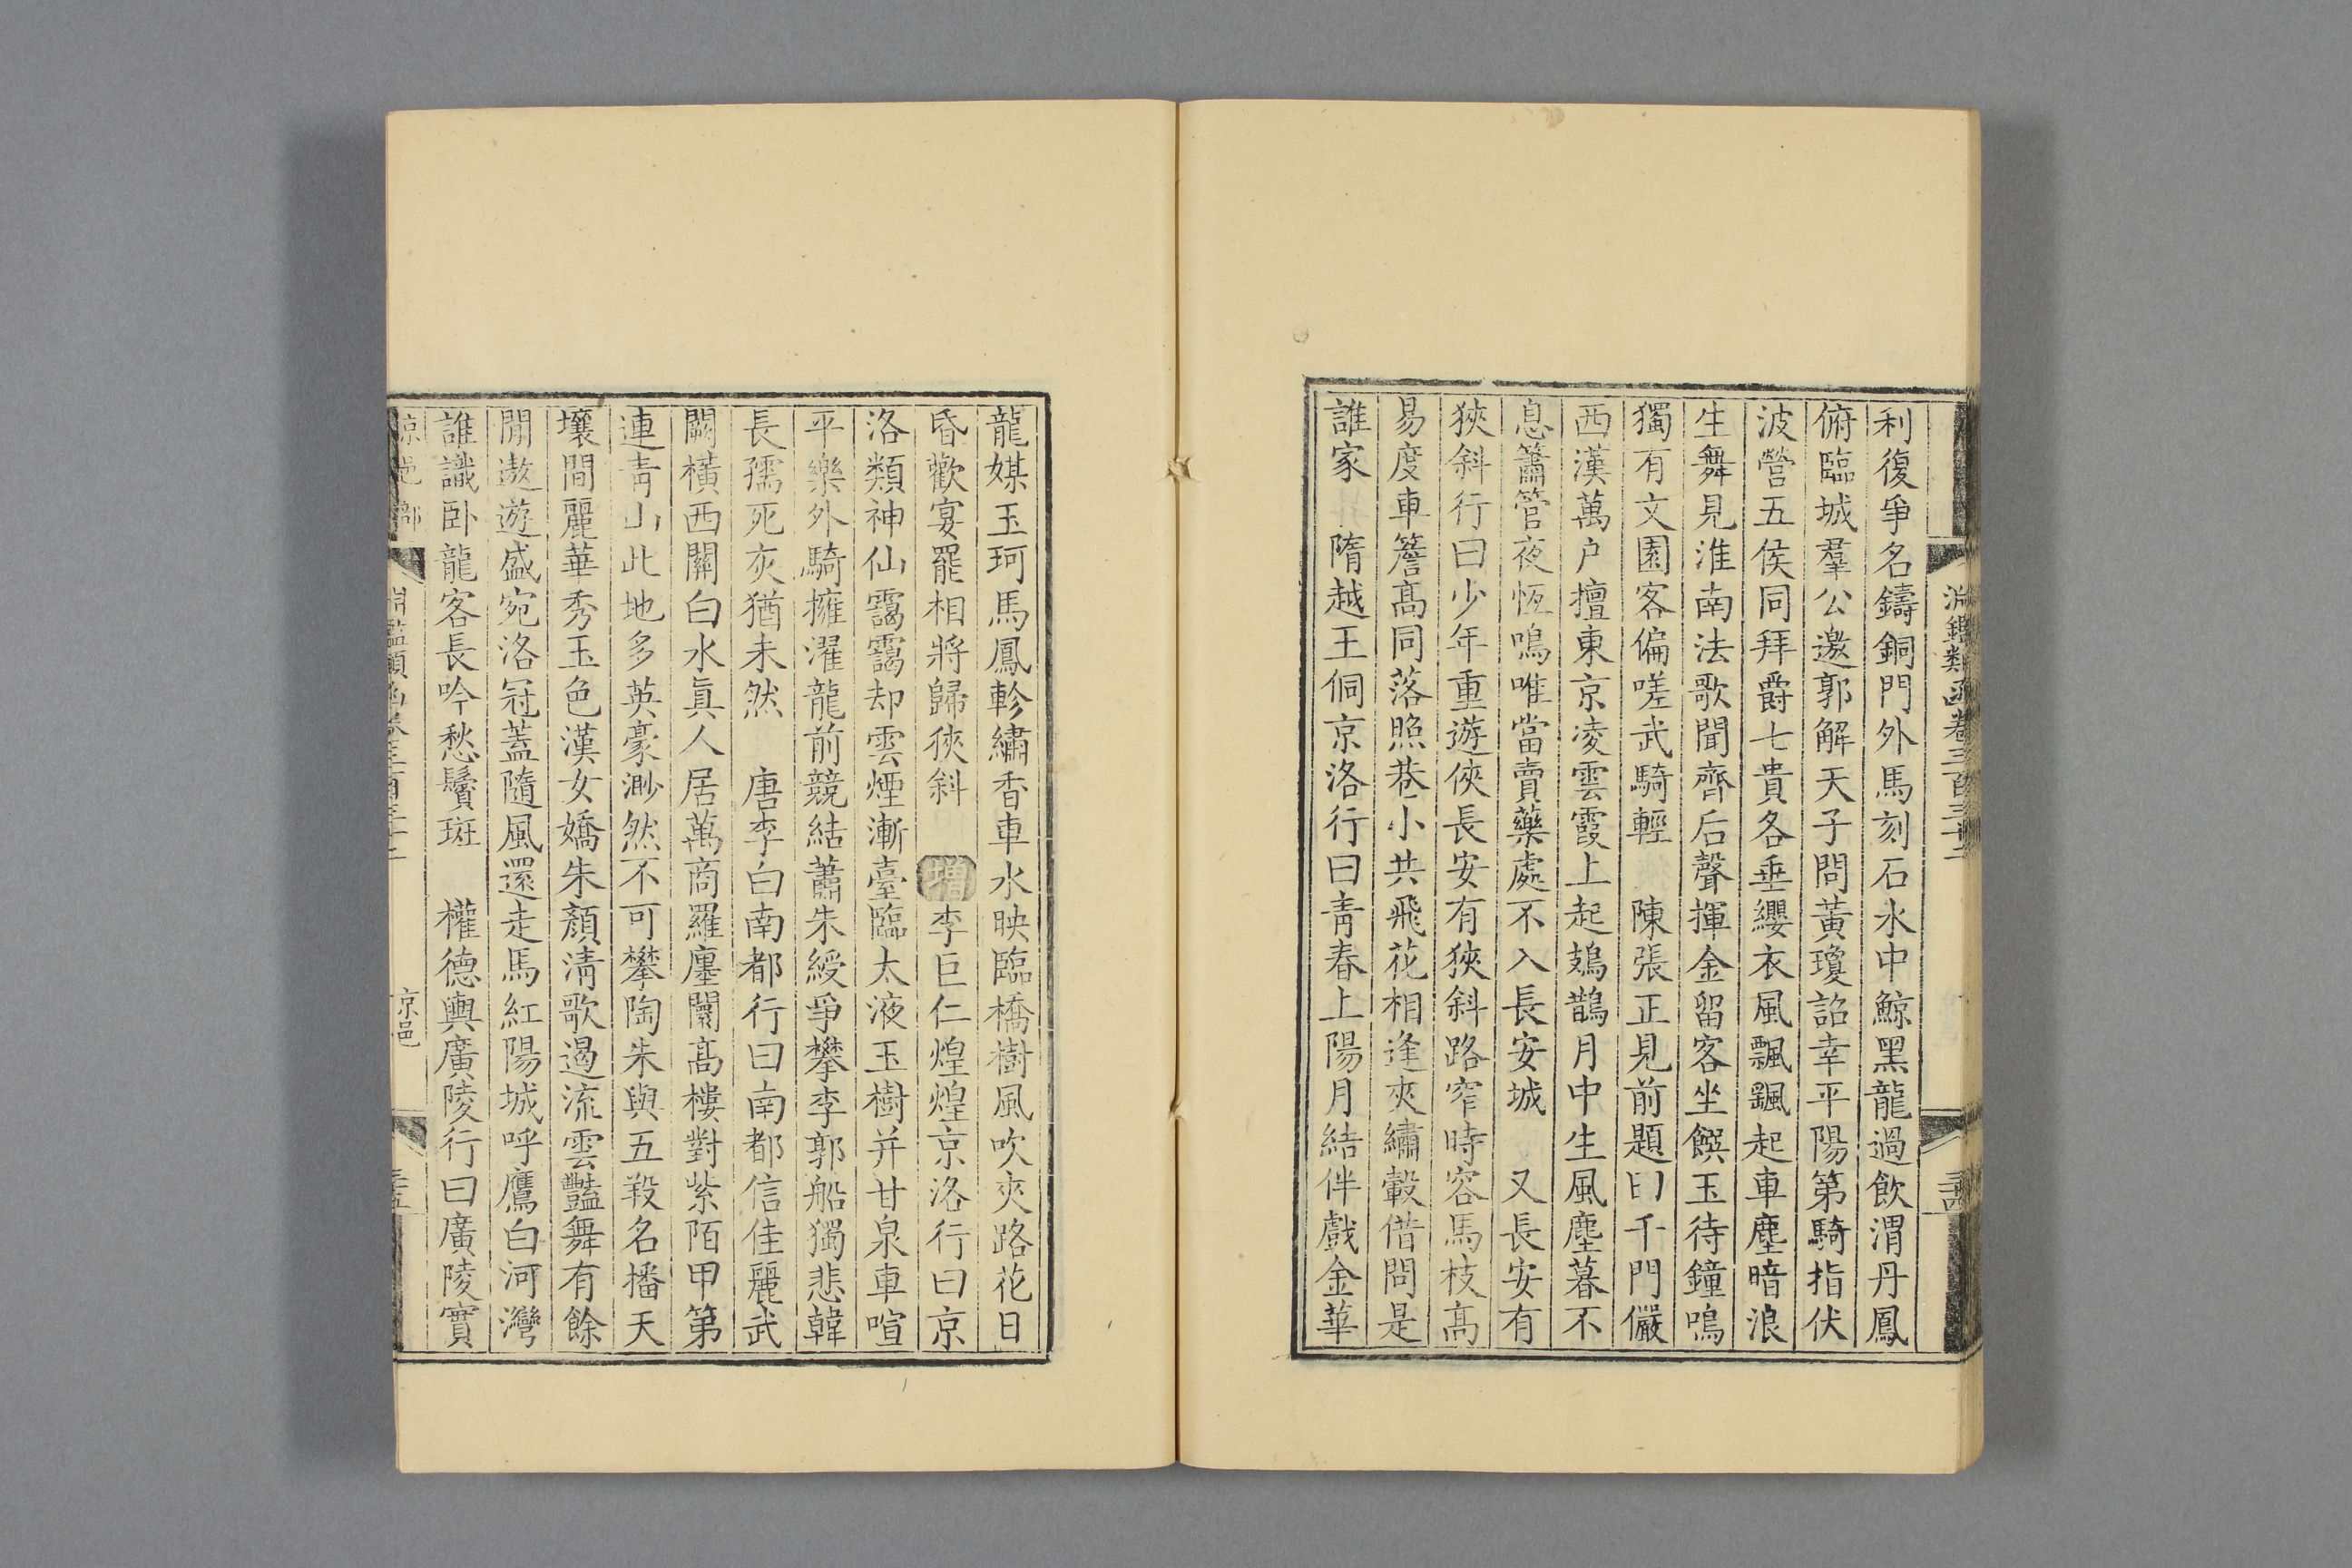 淵鑑類函卷三百三十二
利復爭名鑄銅門外馬刻石水中鯨黑龍過飲渭丹鳳
俯臨城羣公邀郭解天子問黃瓊詔幸平陽第騎指伏
波營五侯同拜爵七貴各垂纓衣風飄飄起車塵暗浪
生舞見淮南法歌聞齊后聲揮金留客坐饌玉待鐘鳴
獨有文園客偏嗟武騎輕　陳張正見前題曰千門儼
西漢萬户擅東京凌雲霞上起鳷鵲月中生風塵暮不
息簫管夜恆鳴唯當賣藥處不入長安城　又長安有
狹斜行曰少年重遊俠長安有狹斜路窄時容馬枝高
易度車簷高同落照巷小共飛花相逢夾繡轂借問是
誰家　隋越王侗京洛行曰青春上陽月結伴戲金華
龍媒玉珂馬鳳軫繡香車水映臨橋樹風吹夾路花日
昏歡宴罷相將歸狹斜　增李巨仁煌煌京洛行曰京
洛類神仙靄靄却雲煙漸臺臨太液玉樹并甘泉車喧
平樂外騎擁濯龍前競結蕭朱綬爭攀李郭船獨悲韓
長孺死灰猶未然　唐李白南都行曰南都信佳麗武
闕橫西關白水眞人居萬商羅廛闤高樓對紫陌甲第
連青山此地多英豪渺然不可攀陶朱與五羖名播天
壤間麗華秀玉色漢女嬌朱顏清歌遏流雲豔舞有餘
閒遨遊盛宛洛冠蓋隨風還走馬紅陽城呼鷹白河灣
誰識卧龍客長吟愁鬢斑　權德輿廣陵行曰廣陵實
京邑